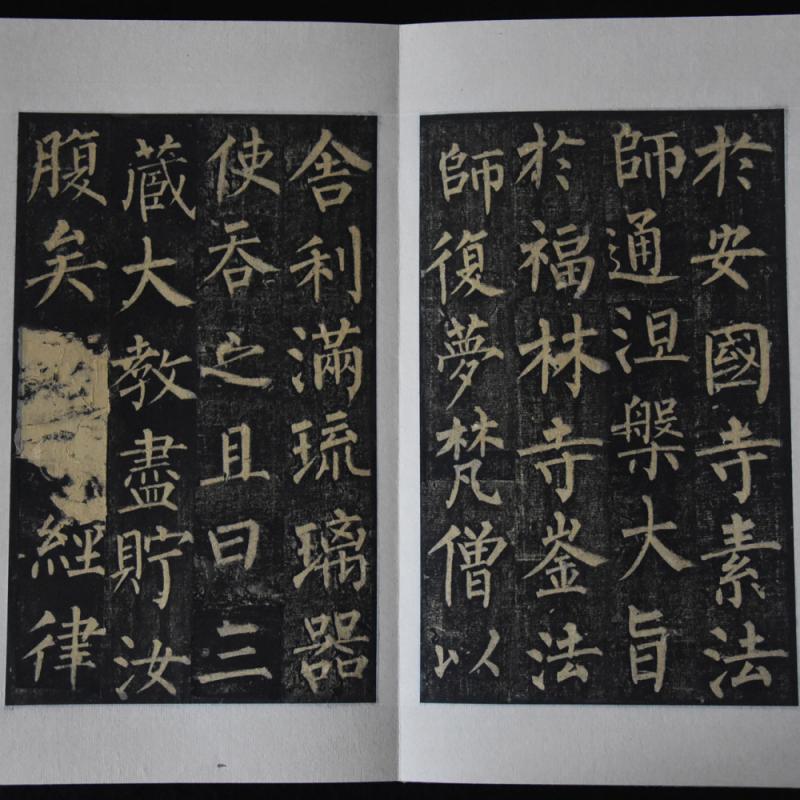 於安國寺素法
師通涅槃大旨
於福林寺崟法
師復夢梵僧以
舍利滿琉璃器
使吞之且曰三
藏大教盡貯汝
腹矣
經律